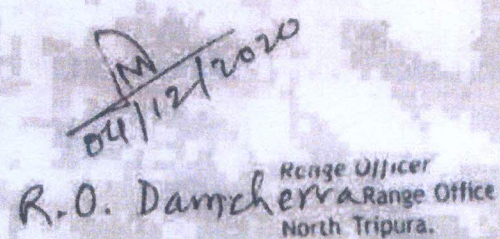 04/12/2020
Range Officer
R.O. Damcherra Range Office
North Tripura.